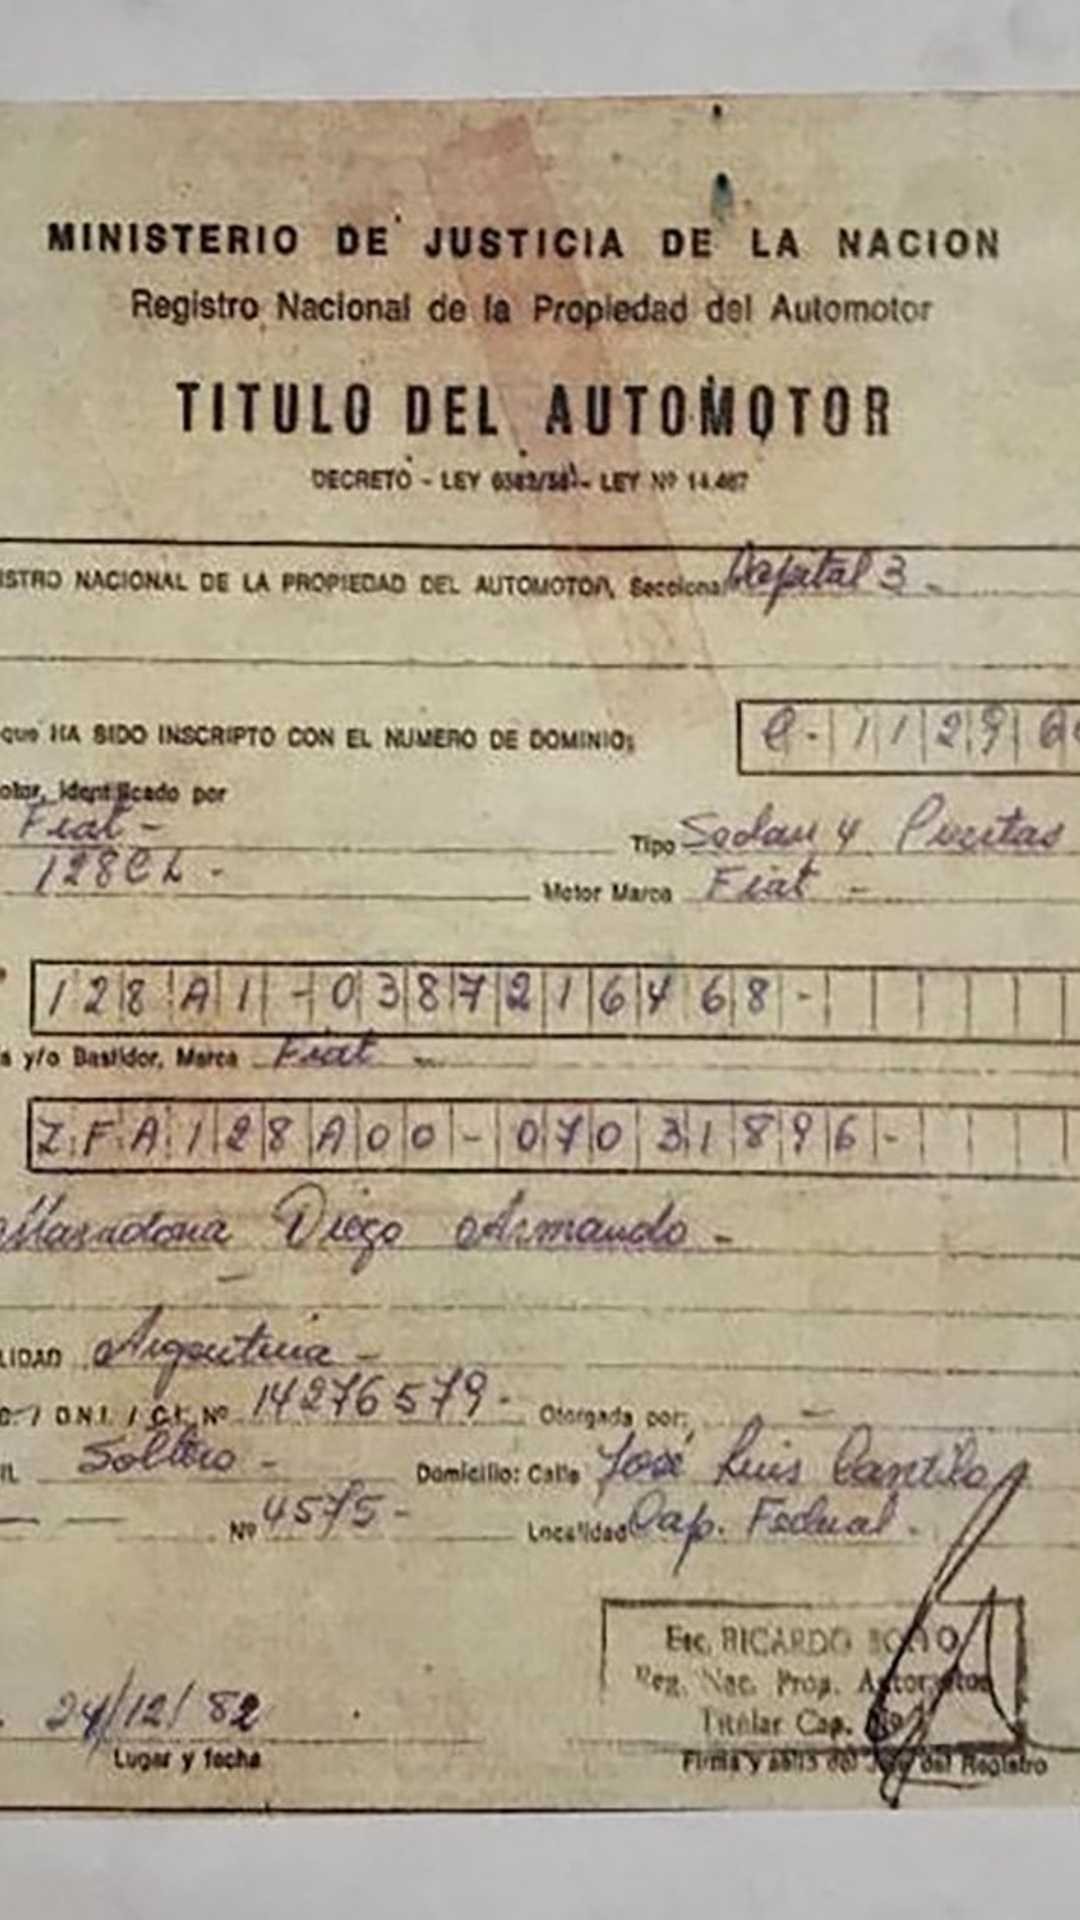 MINISTERIO DE JUSTICIA DE LA NACION
Registro Nacional de la Propiedad del Automotor
TITULO DEL AUTOMOTOR
DECRETO - LEY 6582/58 - LEY Nº 14.467
ISTRO NACIONAL DE LA PROPIEDAD DEL AUTOMOTOR, Seccional Capital 3 -
que HA SIDO INSCRIPTO CON EL NUMERO DE DOMINIO: C-11296
otor, identificado por
Fiat - Tipo Sedan 4 Puertas
128CL - Motor Marca Fiat -
128 A1 - 0387216468 -
s y/o Bastidor, Marca Fiat -
ZFA128A00 - 07031896 -
Maradona Diego Armando -
LIDAD Argentina -
D.N.I. / C.I. Nº 14276579 - Otorgada por: -
IL Soltero - Domicilio: Calle José Luis Cantilo
Nº 4575 - Localidad Cap. Federal.
Esc. RICARDO
Reg. Nac. Prop. Automotor
Titular Cap. Nº
24/12/82
Lugar y fecha Firma y sello del Jefe del Registro